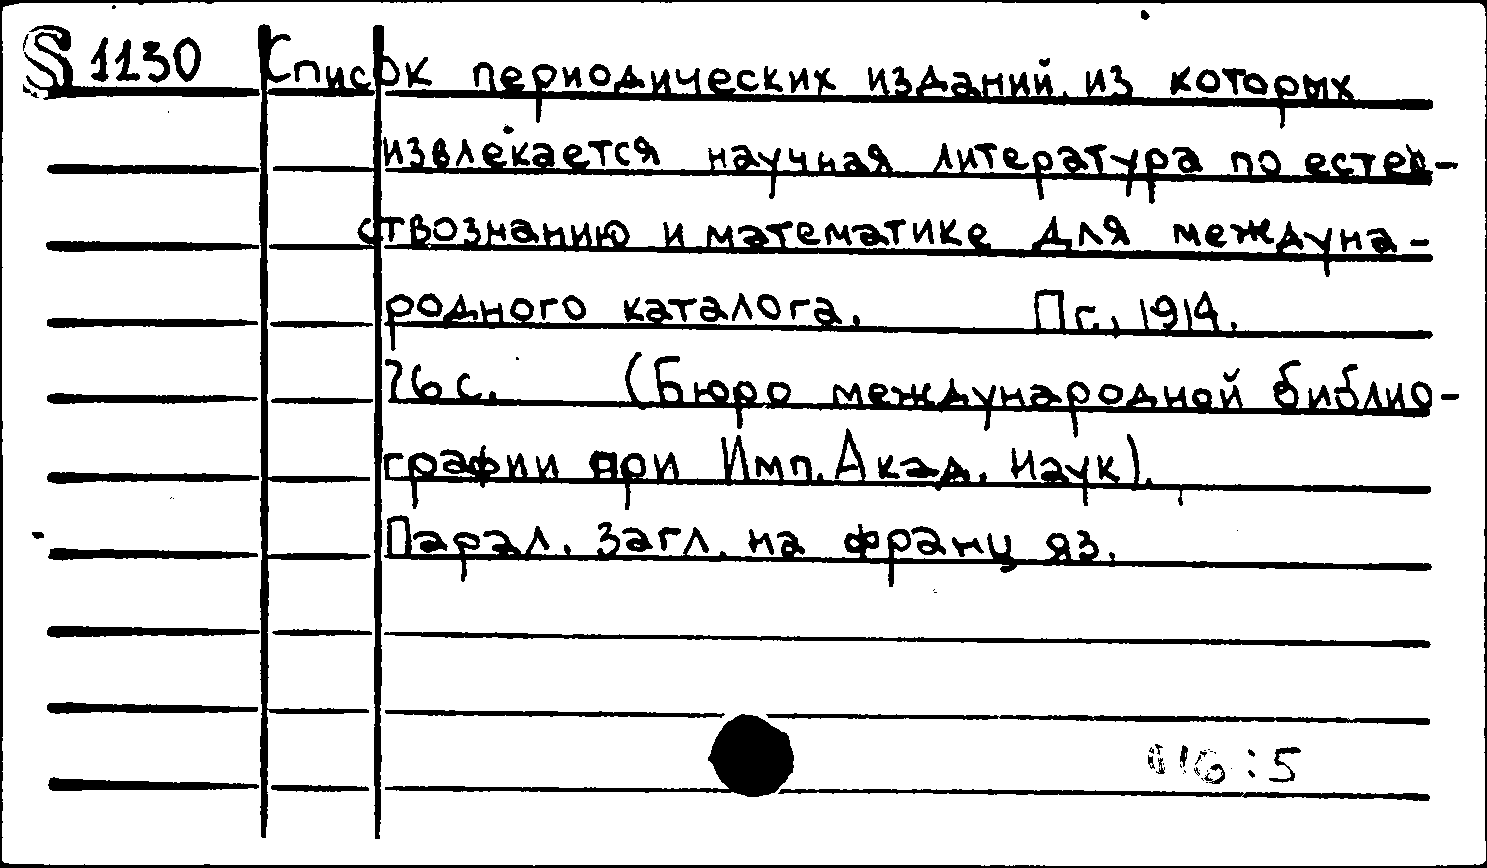 S 1130 Список периодических изданий, из которых
извлекается научная литература по естев-
ствознанию и математике для междуна-
родного каталога. Пг., 1914.
76 с. (Бюро международной библио-
графии при Имп. Акад. Наук).
Парал. загл. на франц яз.
016:5